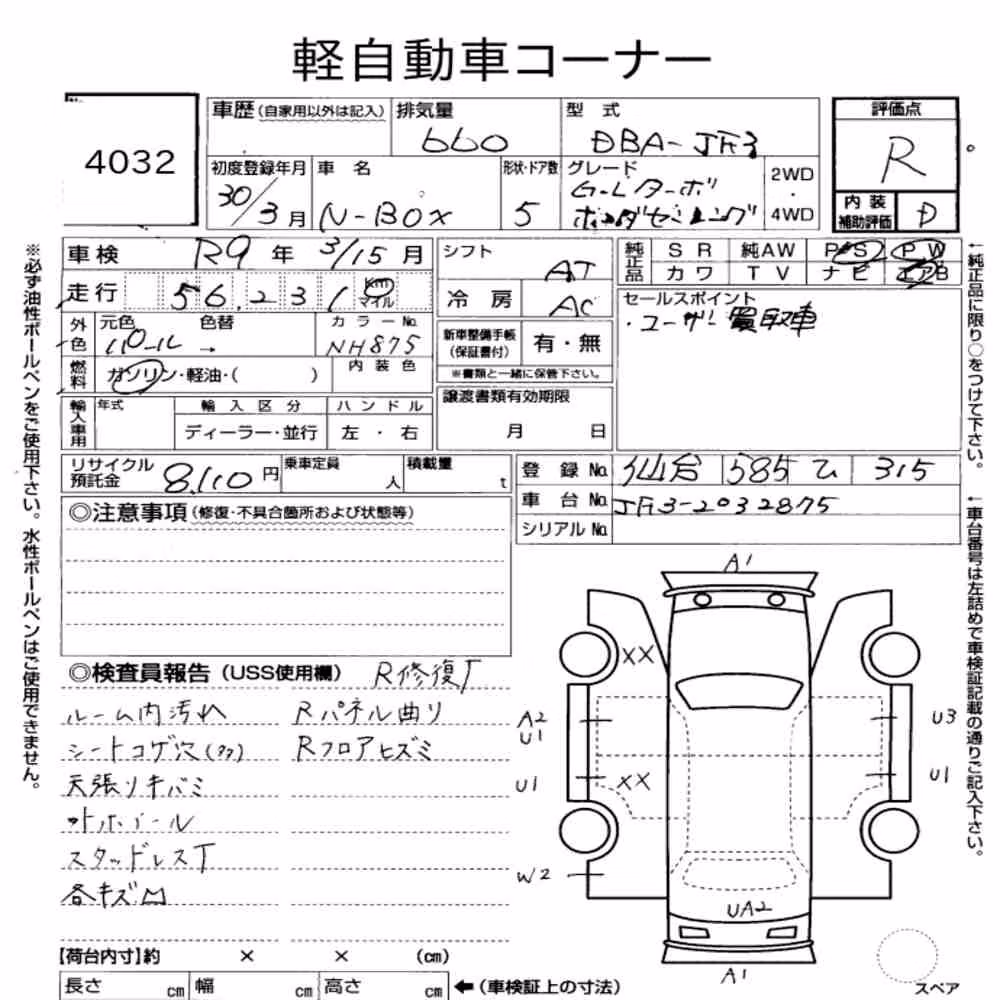 軽自動車コーナー
4032
車歴 (自家用以外は記入)
排気量
660
型 式
DBA-JF3
評価点
R
内装補助評価
D
初度登録年月
30/3月
車 名
N-BOX
形状・ドア数
5
グレード
G-Lターボ
ホンダセンシング
2WD
・
4WD
車検 R9年 3/15月
走行 56,231 km マイル
外色
元色 パール
色替 →
カラーNo. NH875
燃料
ガソリン・軽油・( )
内 装 色
輸入車用
年式
輸 入 区 分
ディーラー・並行
ハ ン ド ル
左 ・ 右
シフト
AT
冷 房
AC
新車整備手帳(保証書付)
有・無
※書類と一緒に保管下さい。
譲渡書類有効期限
月 日
純正品
SR 純AW PS PW
カワ TV ナビ エアB
セールスポイント
・ユーザー買取車
リサイクル預託金 8,110円
乗車定員 人
積載量 t
登 録 No. 仙台 585 315
車 台 No. JF3-2032875
シリアル No.
◎注意事項 (修復・不具合箇所および状態等)
◎検査員報告 (USS使用欄) R修復
ルーム内汚れ
Rパネル曲り
シートコゲ穴(多)
Rフロアヒズミ
天張りキバミ
スタッドレスT
各キズ凹
A1
XX
A2
U1
U3
U1
XX
U1
W2
UA2
A1
スペア
【荷台内寸】約 × × (cm)
長さ cm 幅 cm 高さ cm ←(車検証上の寸法)
※必ず油性ボールペンをご使用下さい。水性ボールペンはご使用できません。
←純正品に限り○をつけて下さい。
←車台番号は左詰めで車検証記載の通りご記入下さい。